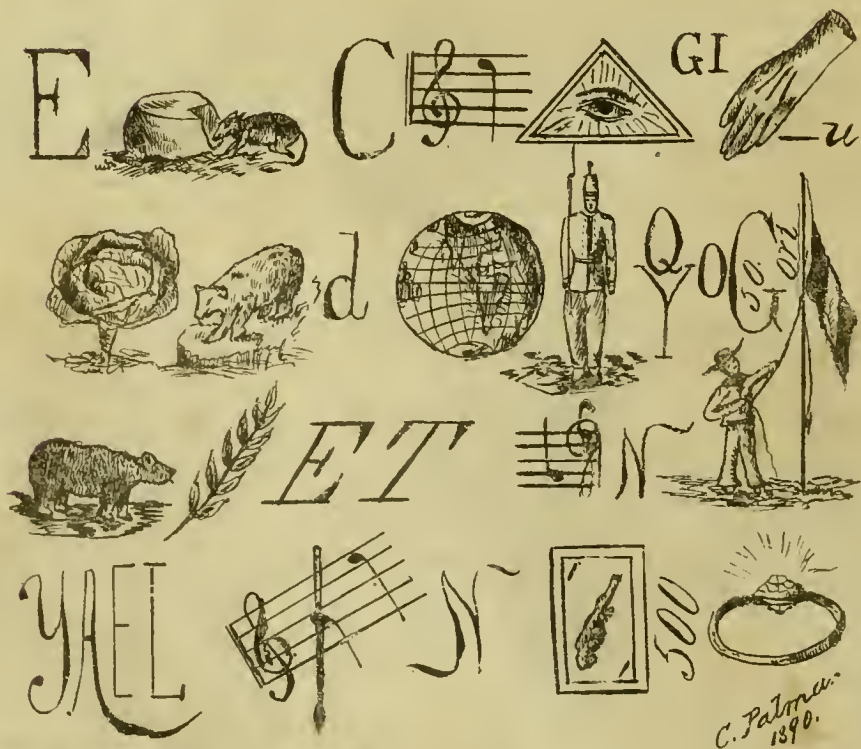 E C GI _u
d Q Y O G 50. ori
ET Ñ
YAEL Ñ 500
C. Palma.
1890.